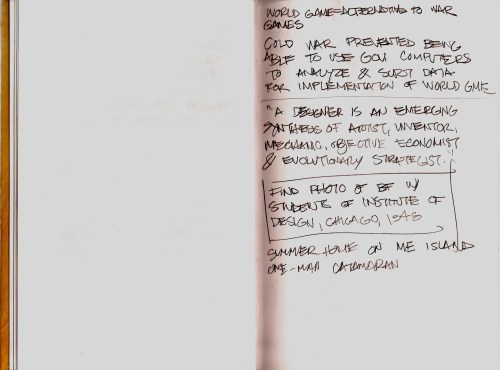 WORLD GAME=ALTERNATIVE TO WAR
GAMES
COLD WAR PREVENTED BEING
ABLE TO USE GOV COMPUTERS
TO ANALYZE & SORT DATA
FOR IMPLEMENTATION OF WORLD GME
"A DESIGNER IS AN EMERGING
SYNTHESIS OF ARTIST, INVENTOR,
MECHANIC, OBJECTIVE ECONOMIST
& EVOLUTIONARY STRATEGIST."
FIND PHOTO OF BF W/
STUDENTS OF INSTITUTE OF
DESIGN, CHICAGO, 1948
SUMMER HOME ON ME ISLAND
ONE-MAN CATAMORAN